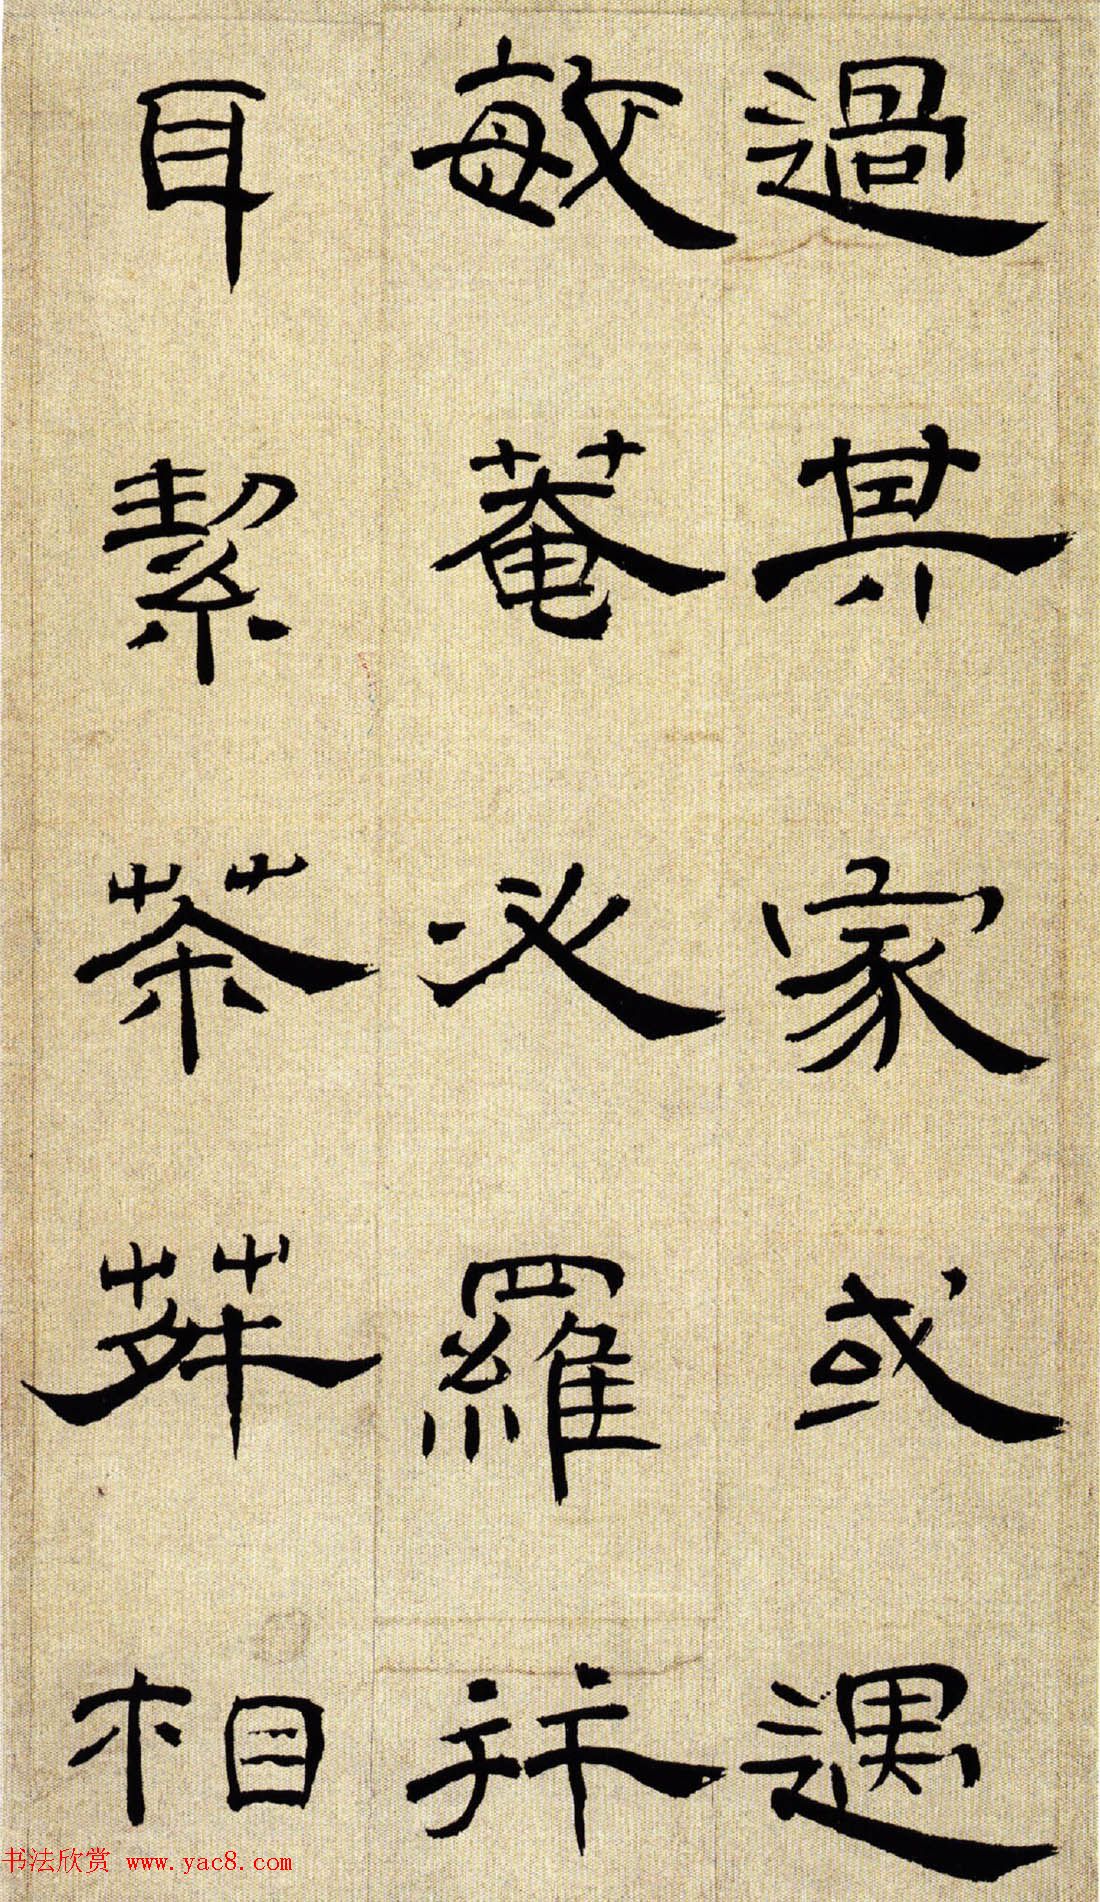 過其家或遇
敏菴必羅并
耳絜茶荈相
书法欣赏 www.yac8.com